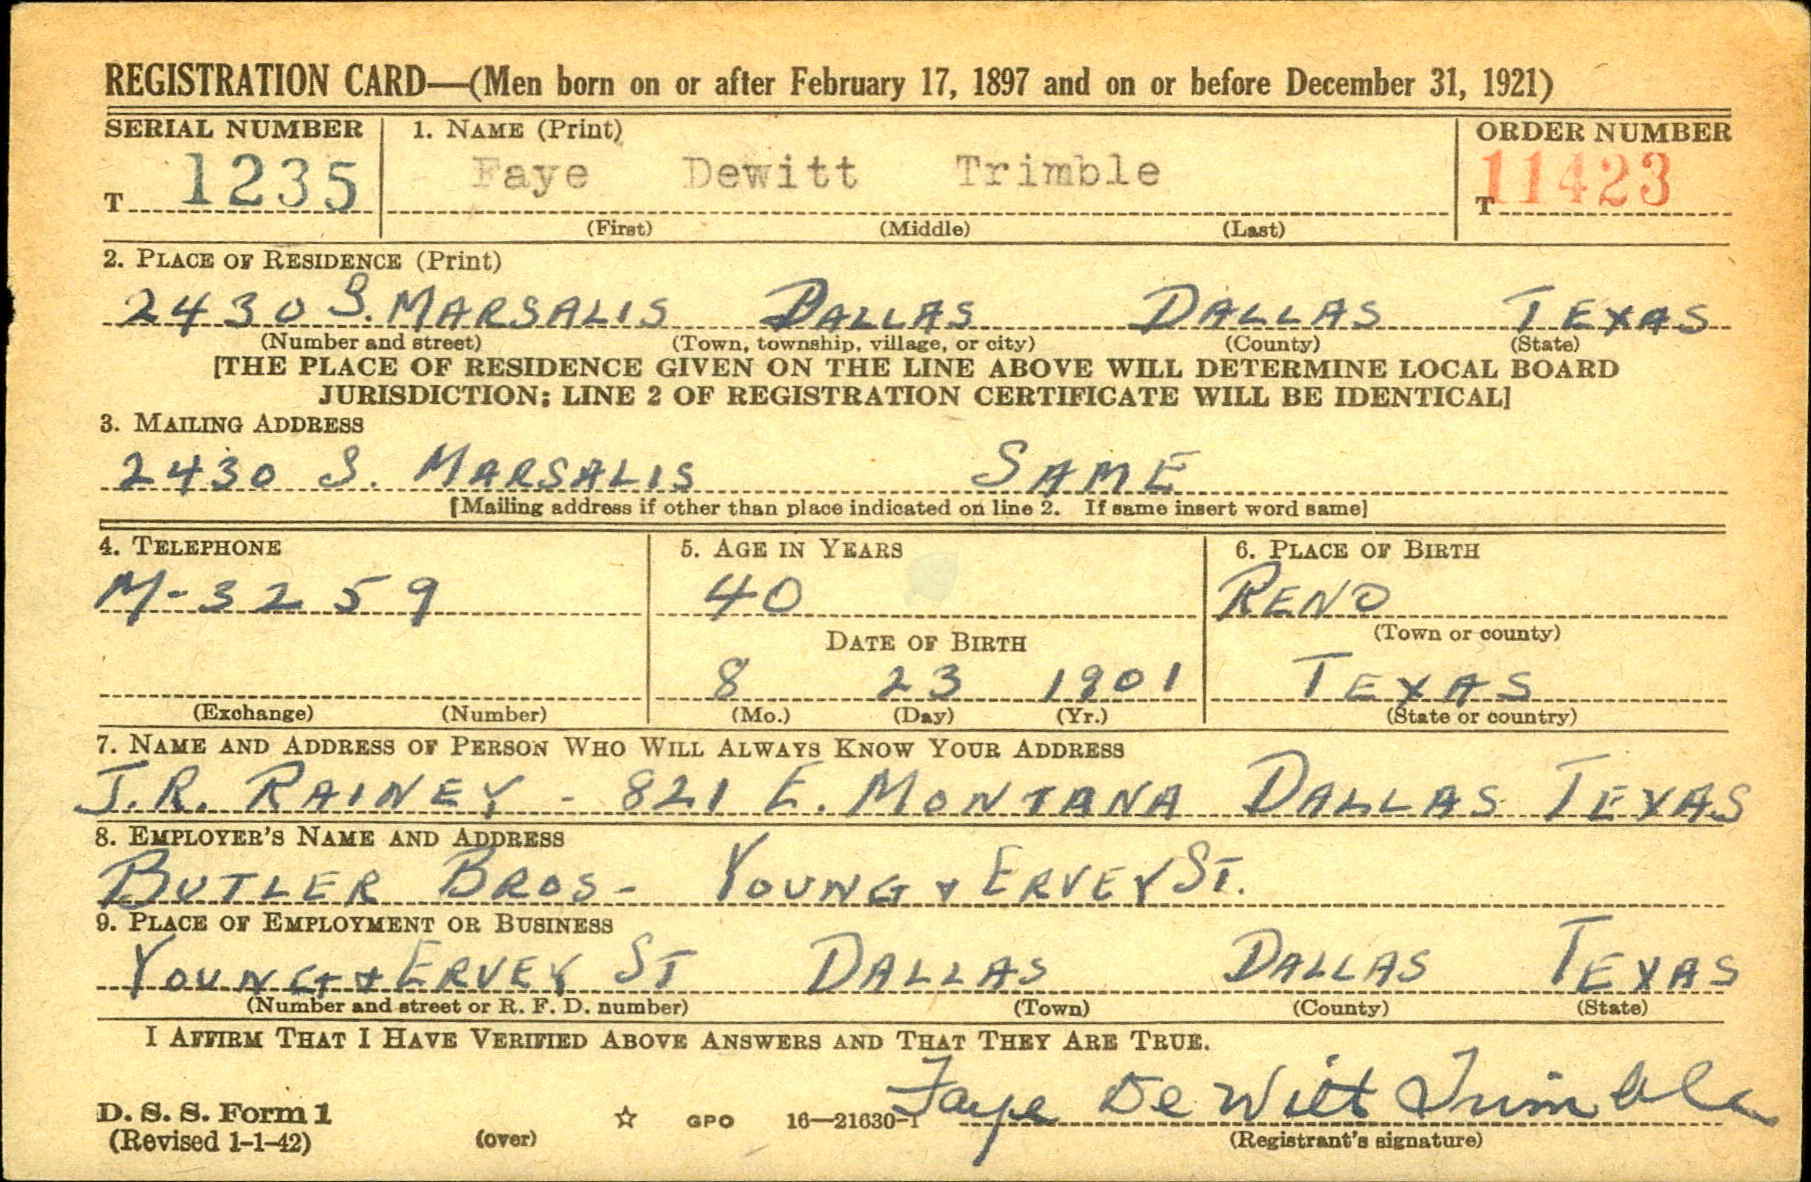 REGISTRATION CARD—(Men born on or after February 17, 1897 and on or before December 31, 1921)
SERIAL NUMBER 1. NAME (Print) ORDER NUMBER
T 1235 Faye Dewitt Trimble T 11423
(First) (Middle) (Last)
2. PLACE OF RESIDENCE (Print)
2430 S. MARSALIS DALLAS DALLAS TEXAS
(Number and street) (Town, township, village, or city) (County) (State)
[THE PLACE OF RESIDENCE GIVEN ON THE LINE ABOVE WILL DETERMINE LOCAL BOARD
JURISDICTION; LINE 2 OF REGISTRATION CERTIFICATE WILL BE IDENTICAL]
3. MAILING ADDRESS
2430 S. MARSALIS SAME
[Mailing address if other than place indicated on line 2. If same insert word same]
4. TELEPHONE 5. AGE IN YEARS 6. PLACE OF BIRTH
M-3259 40 RENO
(Town or county)
DATE OF BIRTH
8 23 1901 TEXAS
(Exchange) (Number) (Mo.) (Day) (Yr.) (State or country)
7. NAME AND ADDRESS OF PERSON WHO WILL ALWAYS KNOW YOUR ADDRESS
J.R. RAINEY - 821 E. MONTANA DALLAS TEXAS
8. EMPLOYER'S NAME AND ADDRESS
BUTLER BROS - YOUNG & ERVEY ST.
9. PLACE OF EMPLOYMENT OR BUSINESS
YOUNG & ERVEY ST DALLAS DALLAS TEXAS
(Number and street or R. F. D. number) (Town) (County) (State)
I AFFIRM THAT I HAVE VERIFIED ABOVE ANSWERS AND THAT THEY ARE TRUE.
Faye De Witt Trimble
D. S. S. Form 1
(Revised 1-1-42) (over) ☆ GPO 16—21630-1 (Registrant's signature)